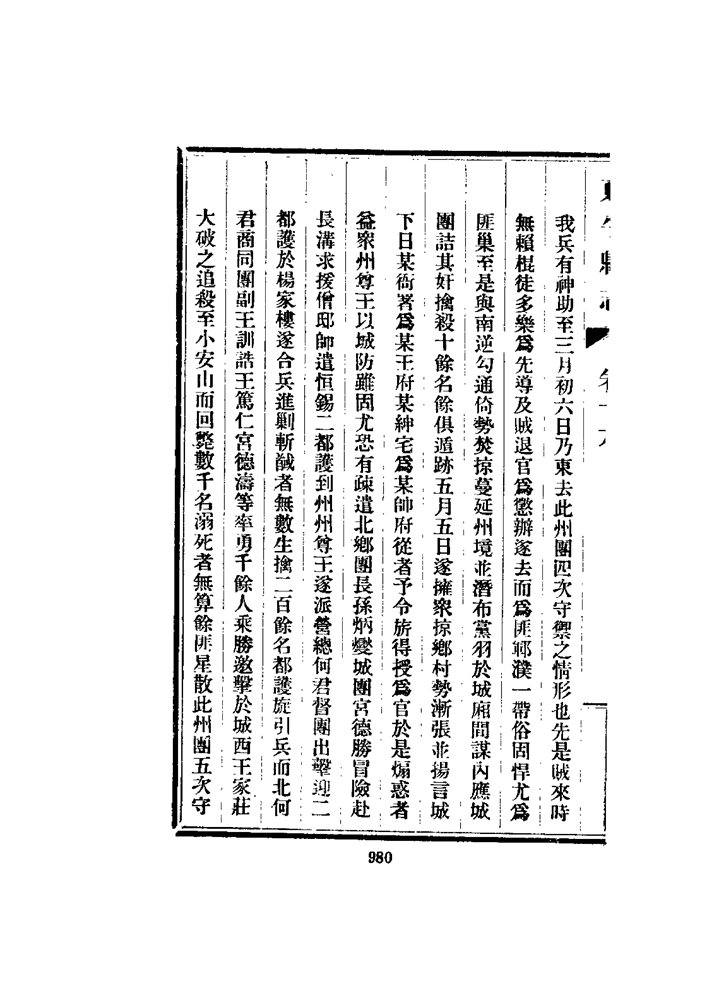 我兵有神助至三月初六日乃東去此州團四次守禦之情形也先是賊來時
無賴棍徒多樂爲先導及賊退官爲懲辦遂去而爲匪鄆濮一帶俗固悍尤爲
匪巢至是與南逆勾通倚勢焚掠蔓延州境並潛布黨羽於城廂間謀內應城
團詰其奸擒殺十餘名餘俱遁跡五月五日遂擁衆掠鄉村勢漸張並揚言城
下日某衙署爲某王府某紳宅爲某帥府從者予令旂得授爲官於是煽惑者
益衆州尊王以城防雖固尤恐有疎遣北鄉團長孫炳燮城團宮德勝冒險赴
長溝求援僧邸帥遣恒錫二都護到州州尊王遂派營總何君督團出擊迎二
都護於楊家樓遂合兵進剿斬馘者無數生擒二百餘名都護旋引兵而北何
君商同團副王訓誥王篤仁宮德濤等率勇千餘人乘勝邀擊於城西王家莊
大破之追殺至小安山而回斃數千名溺死者無算餘匪星散此州團五次守
980